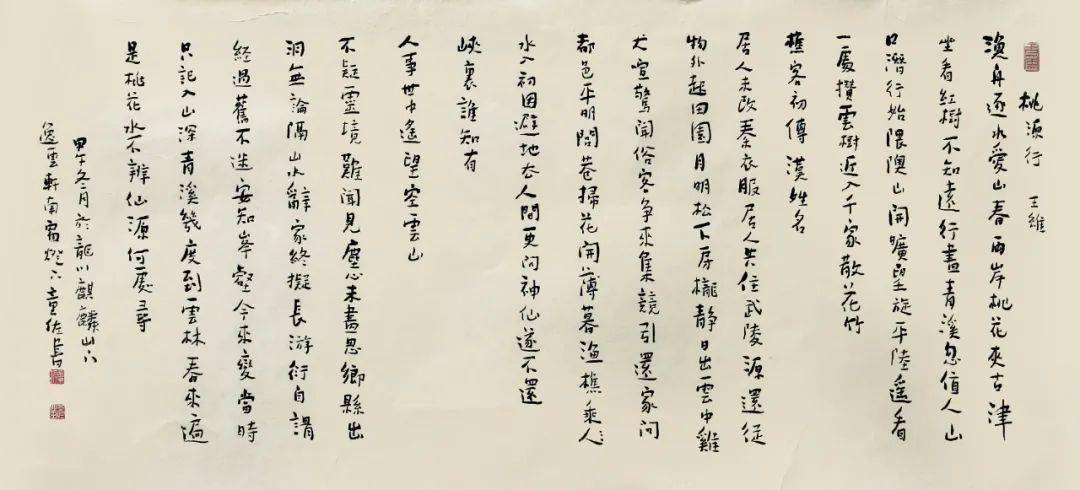 桃源行 王維
漁舟逐水愛山春两岸桃花夾古津
坐看紅樹不知遠行盡青溪忽值人山
口潛行始隈隩山開曠望旋平陸遥看
一處攢雲樹近入千家散花竹
樵客初傳漢姓名
居人未改秦衣服居人共住武陵源還從
物外起田園月明松下房櫳静日出雲中雞
犬喧驚聞俗客争來集競引還家問
都邑平明閭巷掃花開薄暮漁樵乘人
水入初因避地去人間更問神仙遂不還
峽裏誰知有
人事世中遥望空雲山
不疑靈境難聞見塵心未盡思鄉縣出
洞無論隔山水辭家終擬長游衍自謂
經過舊不迷安知峰壑今來變當時
只記入山深青溪幾度到雲林春來遍
是桃花水不辨仙源何處尋
甲午冬月於龍川麒麟山下
逸雲軒南窗燈下童佐長